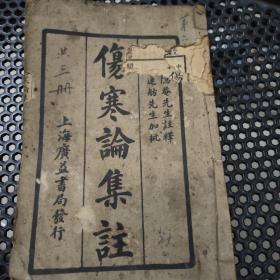 先生註釋
蓮舫先生加批
傷寒論集註
上海廣益書局發行
共三册